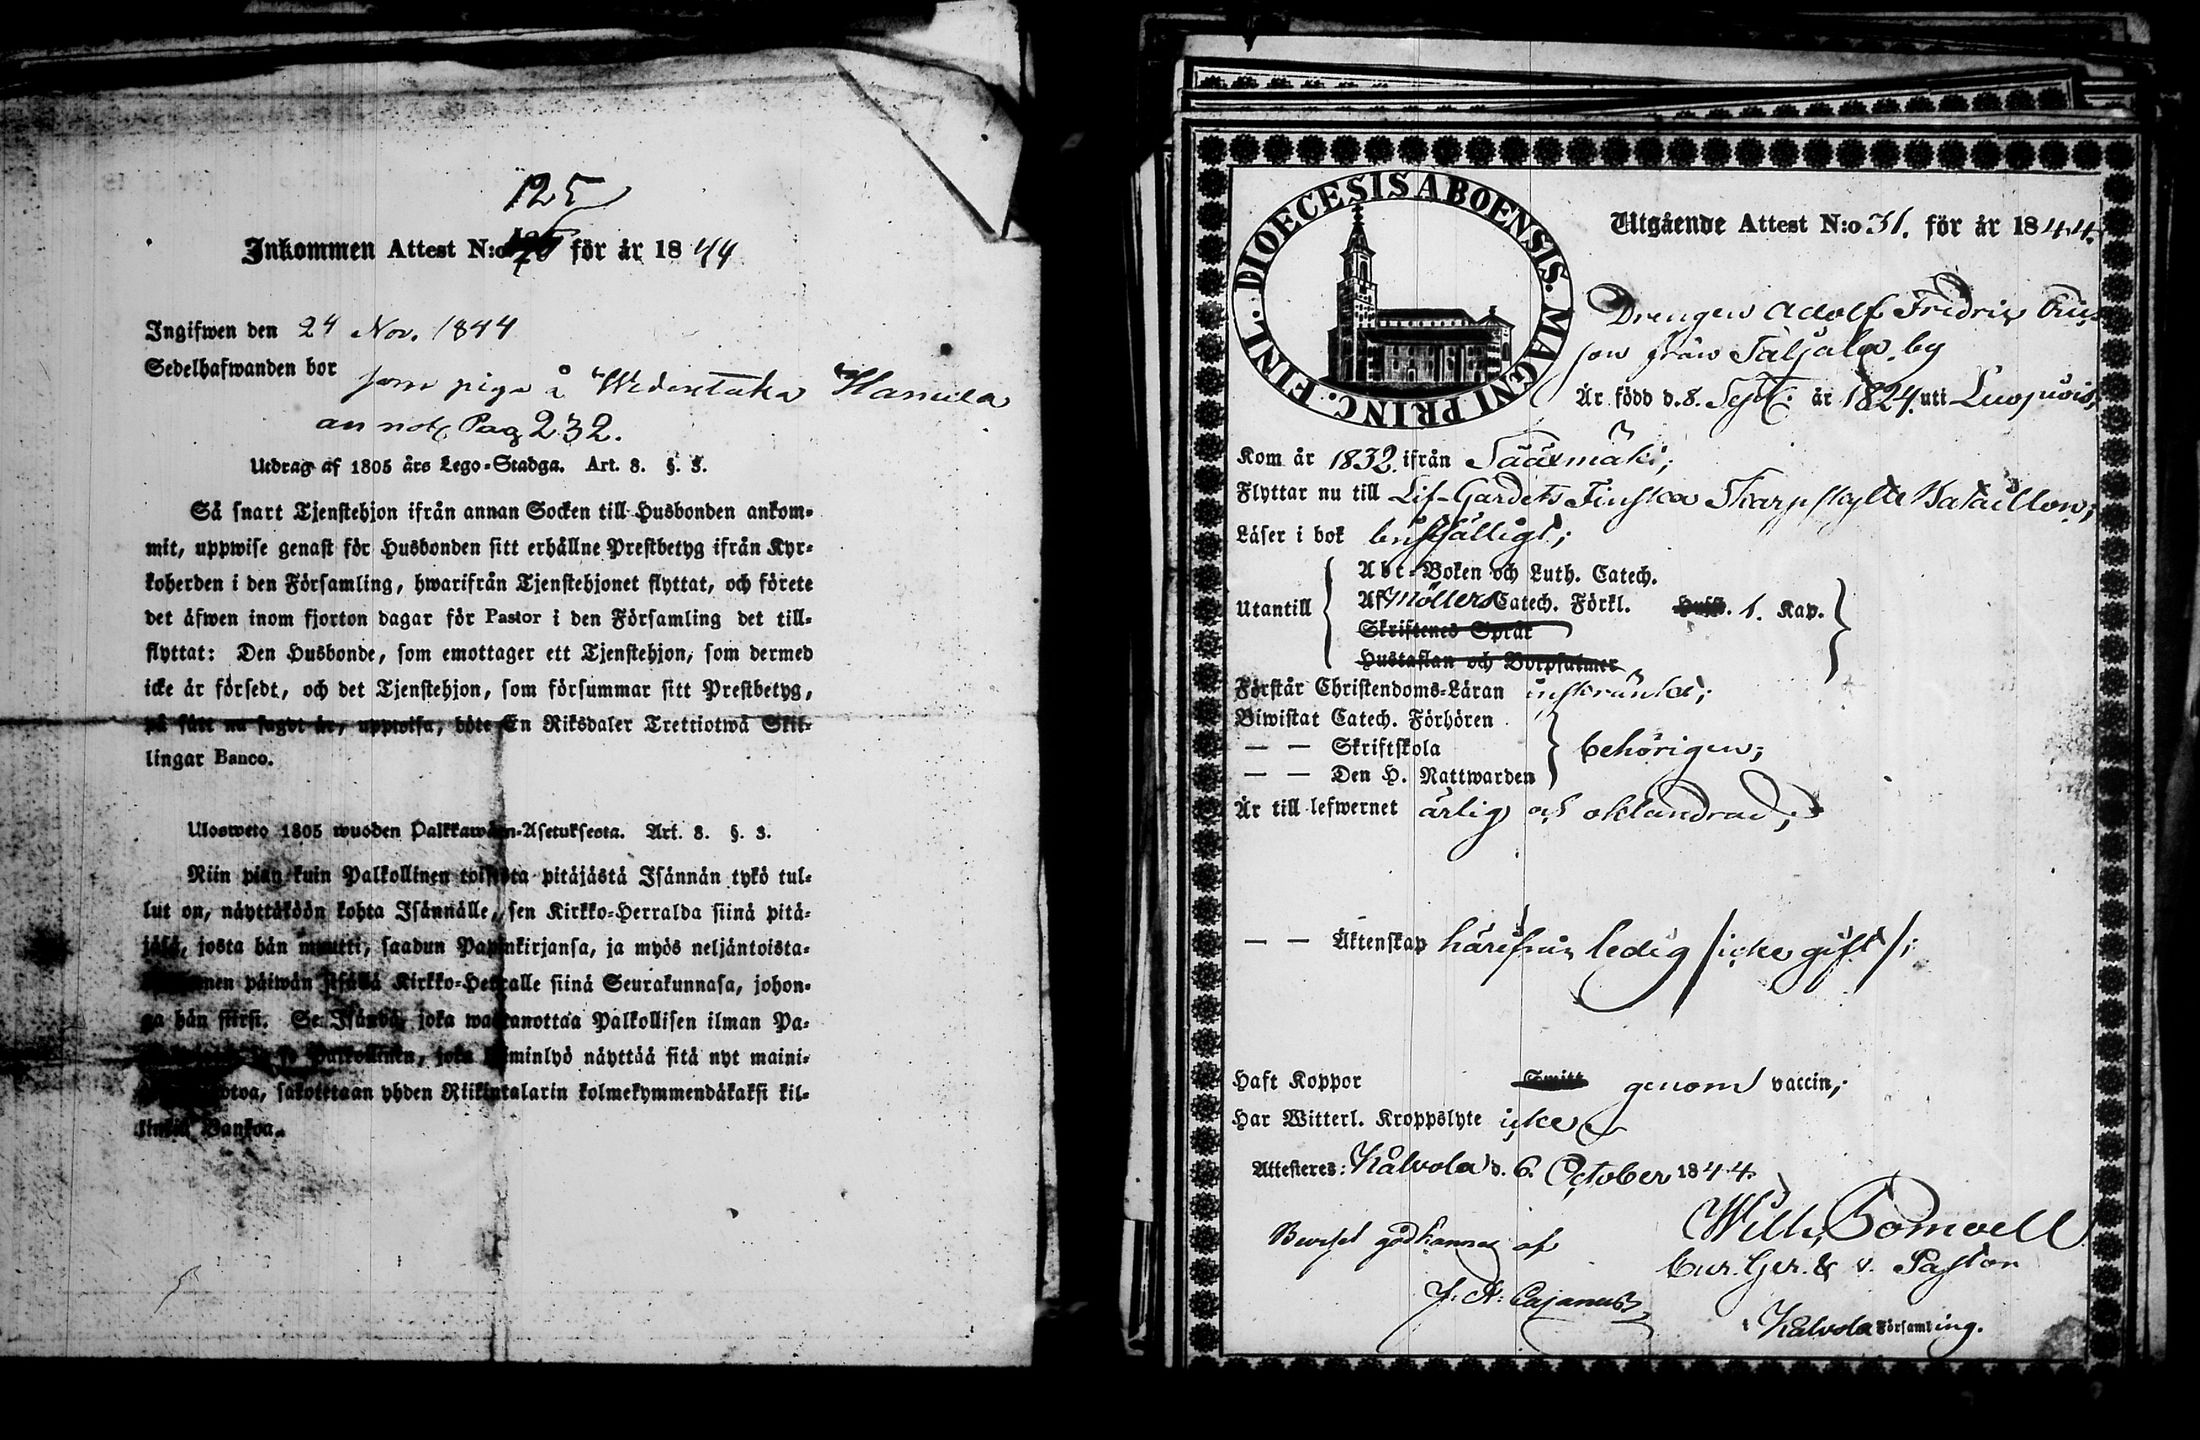 125
Inkommen Attest N:o för år 1844
Ingifwen den 24 Nov. 1844
Sedelhafwanden bor som piga å Wedentaka
annot. Pag 232.
Utdrag af 1805 års Lego-Stadga. Art. 8. §. 3.
Så snart Tjenstehjon ifrån annan Socken till Husbonden ankom-
mit, uppwise genast för Husbonden sitt erhållne Prestbetyg ifrån Kyr-
koherden i den Församling, hwarifrån Tjenstehjonet flyttat, och förete
det äfwen inom fjorton dagar för Pastor i den Församling det till-
flyttat: Den Husbonde, som emottager ett Tjenstehjon, som dermed
icke är försedt, och det Tjenstehjon, som försummar sitt Prestbetyg,
på sätt nu sagdt är, uppwisa, böte En Riksdaler Trettiotwå Skil-
lingar Banco.
Ulosweto 1805 wuoden Palkkawäen-Asetuksesta. Art. 8. §. 3.
Niin pian kuin Palkollinen toisesta pitäjästä Isännän tykö tul-
lut on, näyttäköön kohta Isännälle, sen Kirkko-Herralda siinä pitä-
jäsä, josta hän muutti, saadun Papinkirjansa, ja myös neljäntoista-
päiwän sisällä Kirkko-Herralle siinä Seurakunnasa, johon-
ga hän siirsi. Se Isändä, joka wastanottaa Palkollisen ilman Pa-
Palkollinen, joka laiminlyö näyttää sitä nyt maini-
sakotetaan yhden Riikintalarin kolmekymmendäkaksi kil-
lingiä Bankoa.
DIOECESIS ABOENSIS. MAGNI PRINC. FINL.
Utgående Attest N:o 31. för år 1844.
Drengen Adolf Fredric
son från Taljala by
Är född d. 8. Sept. år 1824. uti
Kom år 1832. ifrån Sääxmäki;
Flyttar nu till Lif-Gardets Finska Skarpskytte Bataillon;
Läser i bok
Utantill
Abc-Boken och Luth. Catech.
Af Möllers Catech. Förkl. 1. Kap.
Skriftenes Språk
Hustaflan och Botpsalmer
Förstår Christendoms-Läran inskränkt;
Biwistat Catech. Förhören
— — Skriftskola behörigen;
— — Den H. Nattwarden
Är till lefwernet ärlig och oklandrad;
— — Äktenskap härifrån ledig /icke gift/;
Haft Koppor genom vaccin;
Har Witterl. Kroppslyte icke
Attesteres: Kalvola d. 6. October 1844.
Will. Bomvell
Beviset godkännes af
v. Pastor
J. A. Cajanus
i Kalvola Församling.